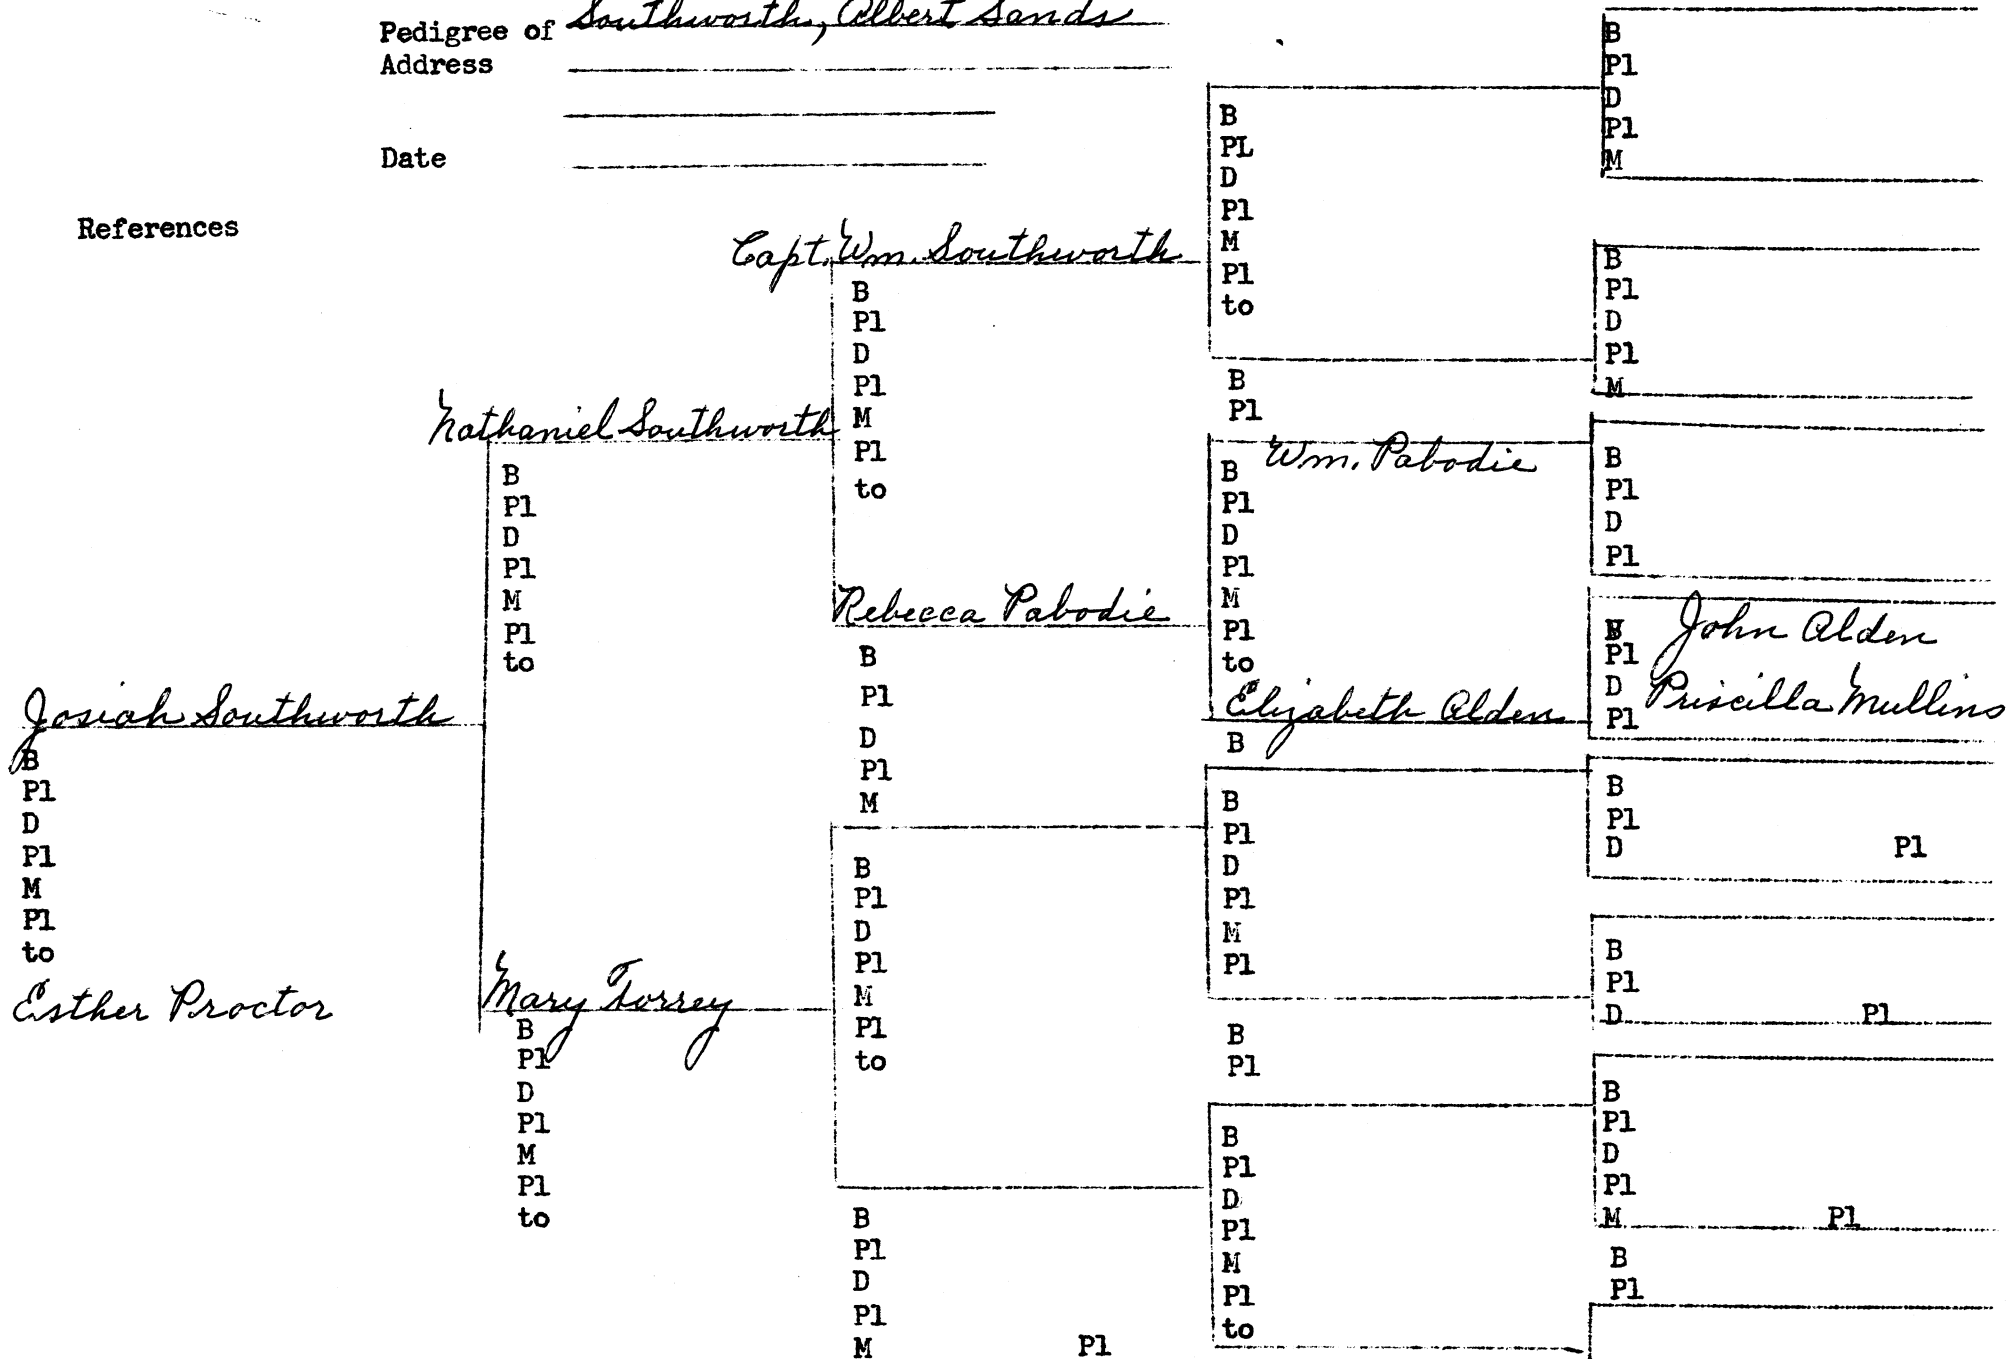 Pedigree of Southworth, Albert Sands
Address
Date
References
Josiah Southworth
B
Pl
D
Pl
M
Pl
to
Esther Proctor
Nathaniel Southworth
B
Pl
D
Pl
M
Pl
to
Mary Torrey
B
Pl
D
Pl
M
Pl
to
Capt. Wm. Southworth
B
Pl
D
Pl
M
Pl
to
Rebecca Pabodie
B
Pl
D
Pl
M
B
Pl
D
Pl
M
Pl
to
B
Pl
D
Pl
M Pl
B
PL
D
Pl
M
Pl
to
B
Pl
Wm. Pabodie
B
Pl
D
Pl
M
Pl
to
Elizabeth Alden
B
B
Pl
D
Pl
M
Pl
B
Pl
B
Pl
D
Pl
M
Pl
to
B
Pl
D
Pl
M
B
Pl
D
Pl
M
B
Pl
D
Pl
B John Alden
Pl
D Priscilla Mullins
Pl
B
Pl
D Pl
B
Pl
D Pl
B
Pl
D
Pl
M Pl
B
Pl